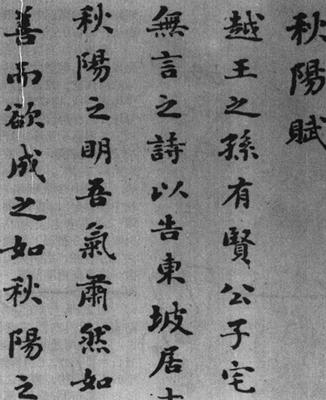 秋陽賦
越王之孫有賢公子宅
無言之詩以告東坡居士
秋陽之明吾氣肅然如
善而欲成之如秋陽之